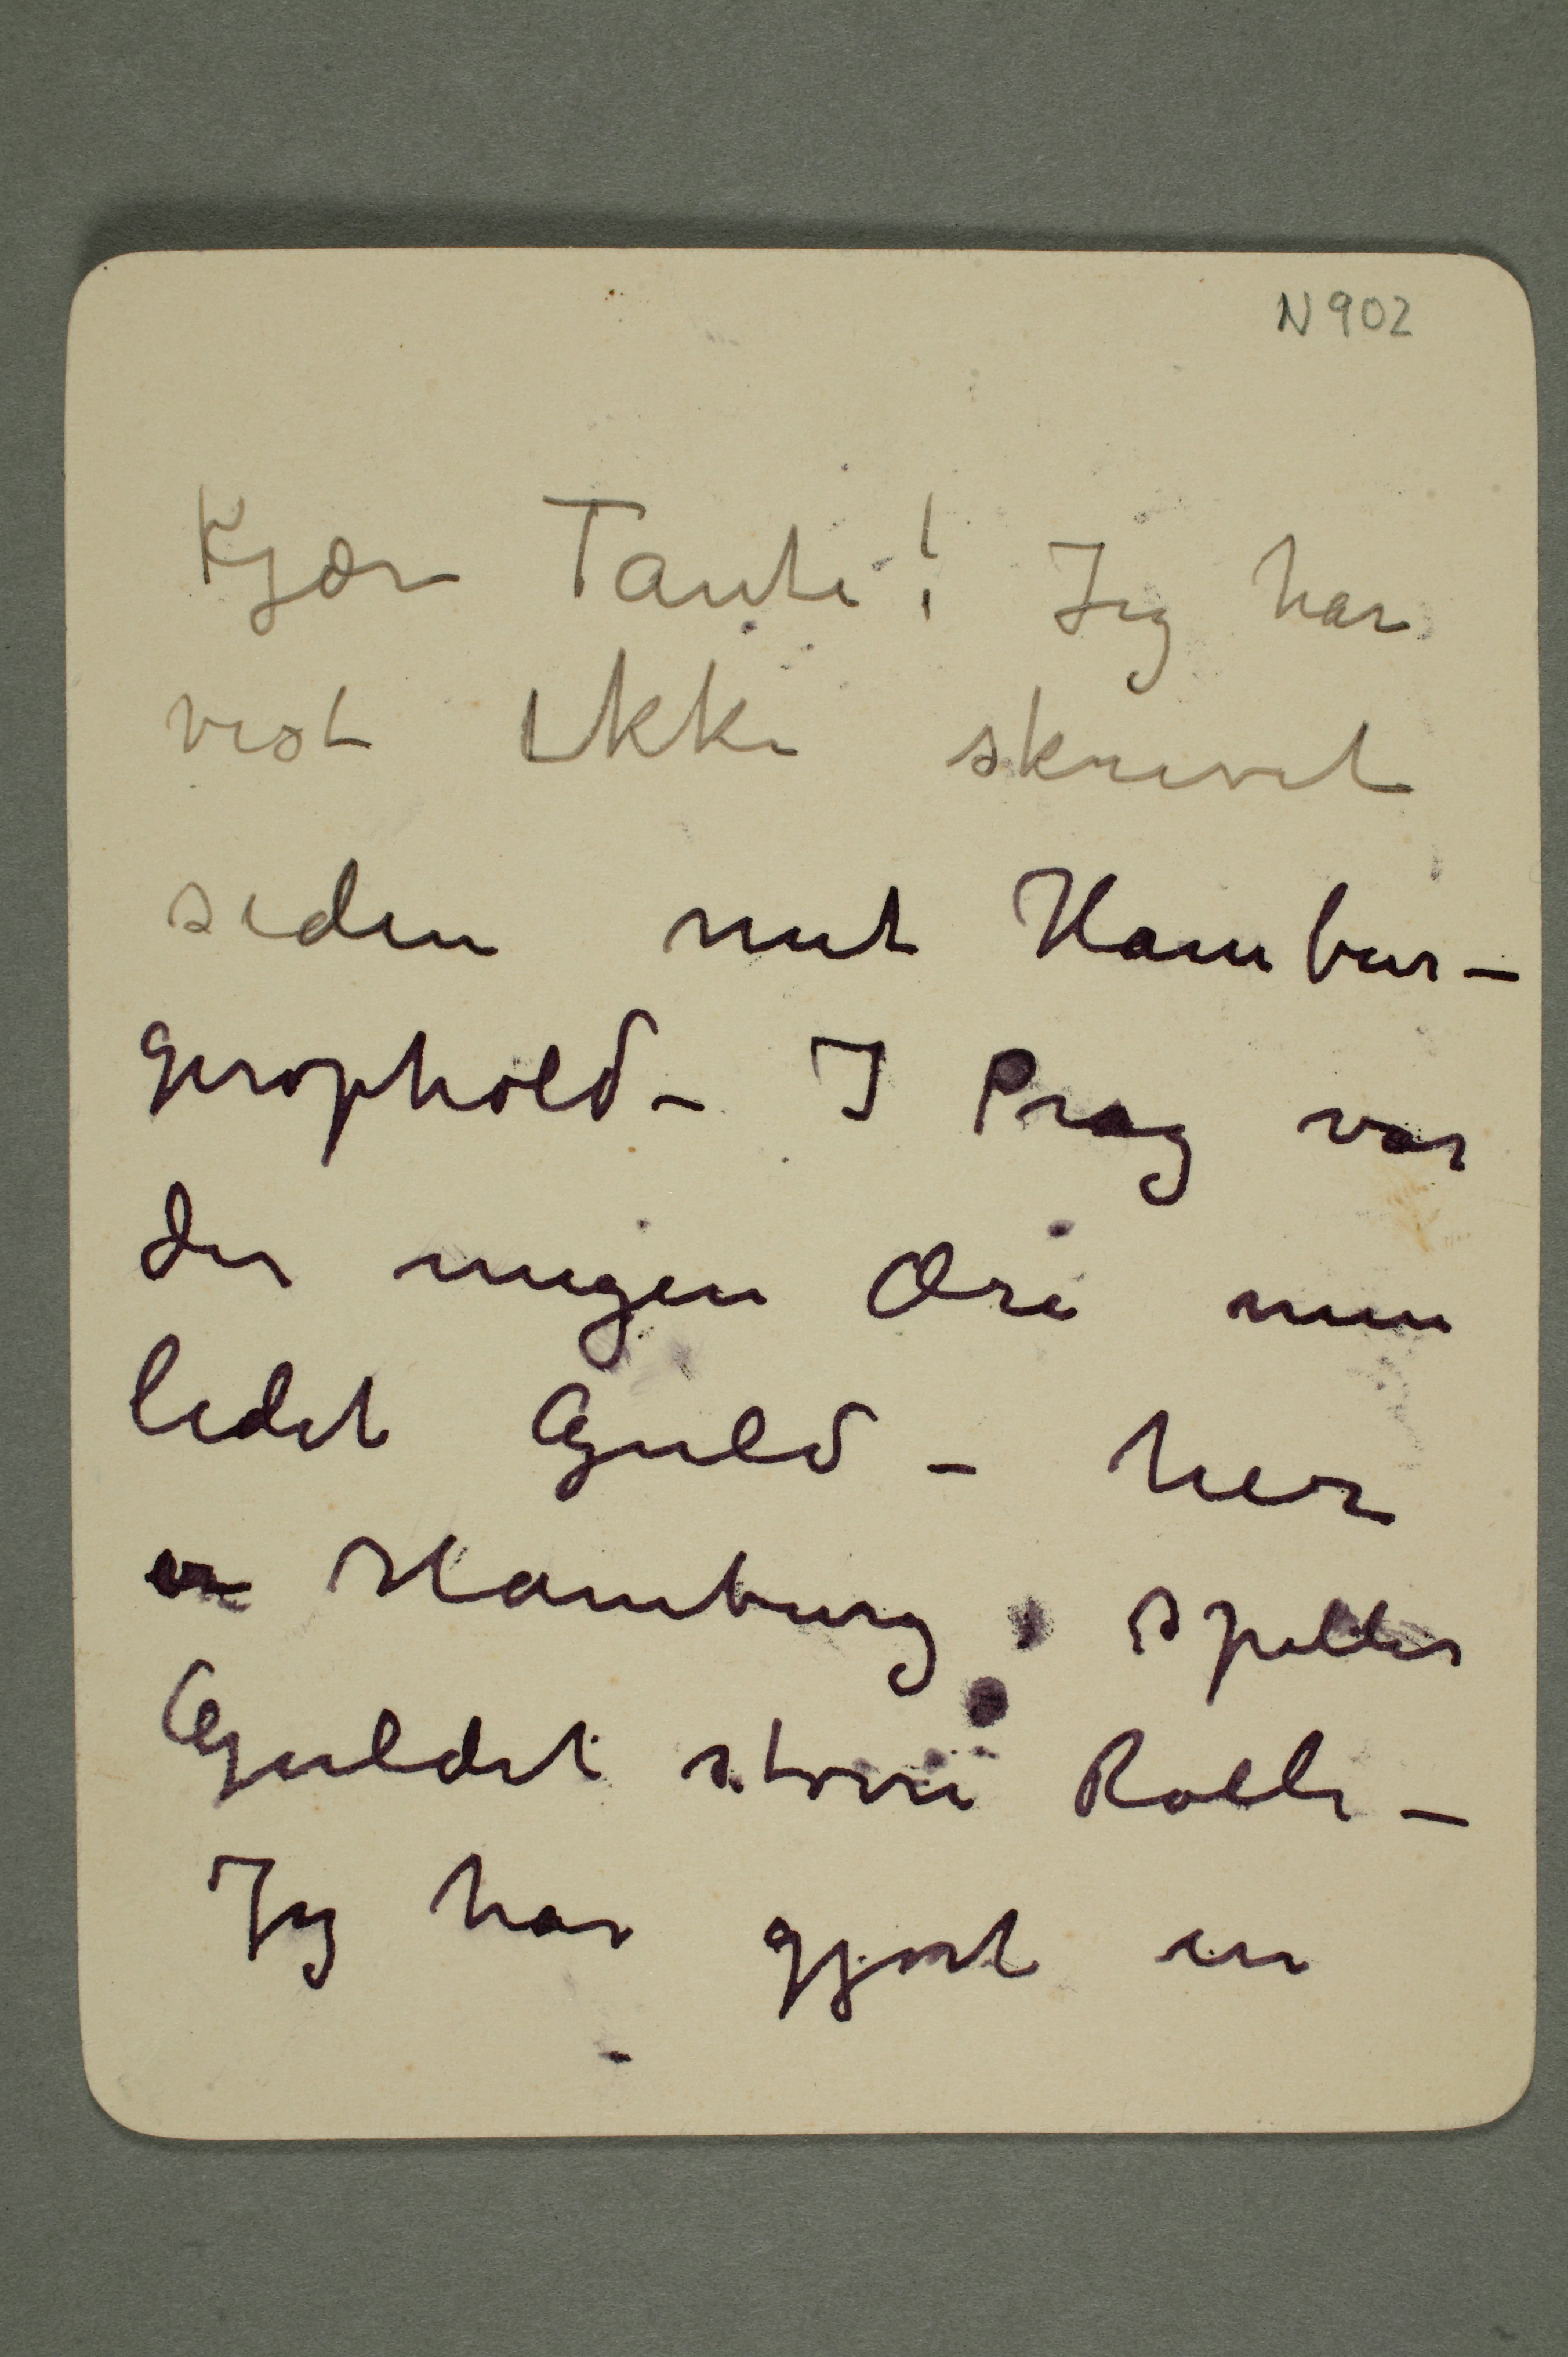 N 902
Kjære Tante! Jeg har
vist ikke skrevet
siden mit Hambur-
gerophold – I Prag var
der megen Ære men
lidet Guld – her
Hamburg spiller
Guldet større Rolle –
Jeg har gjort en